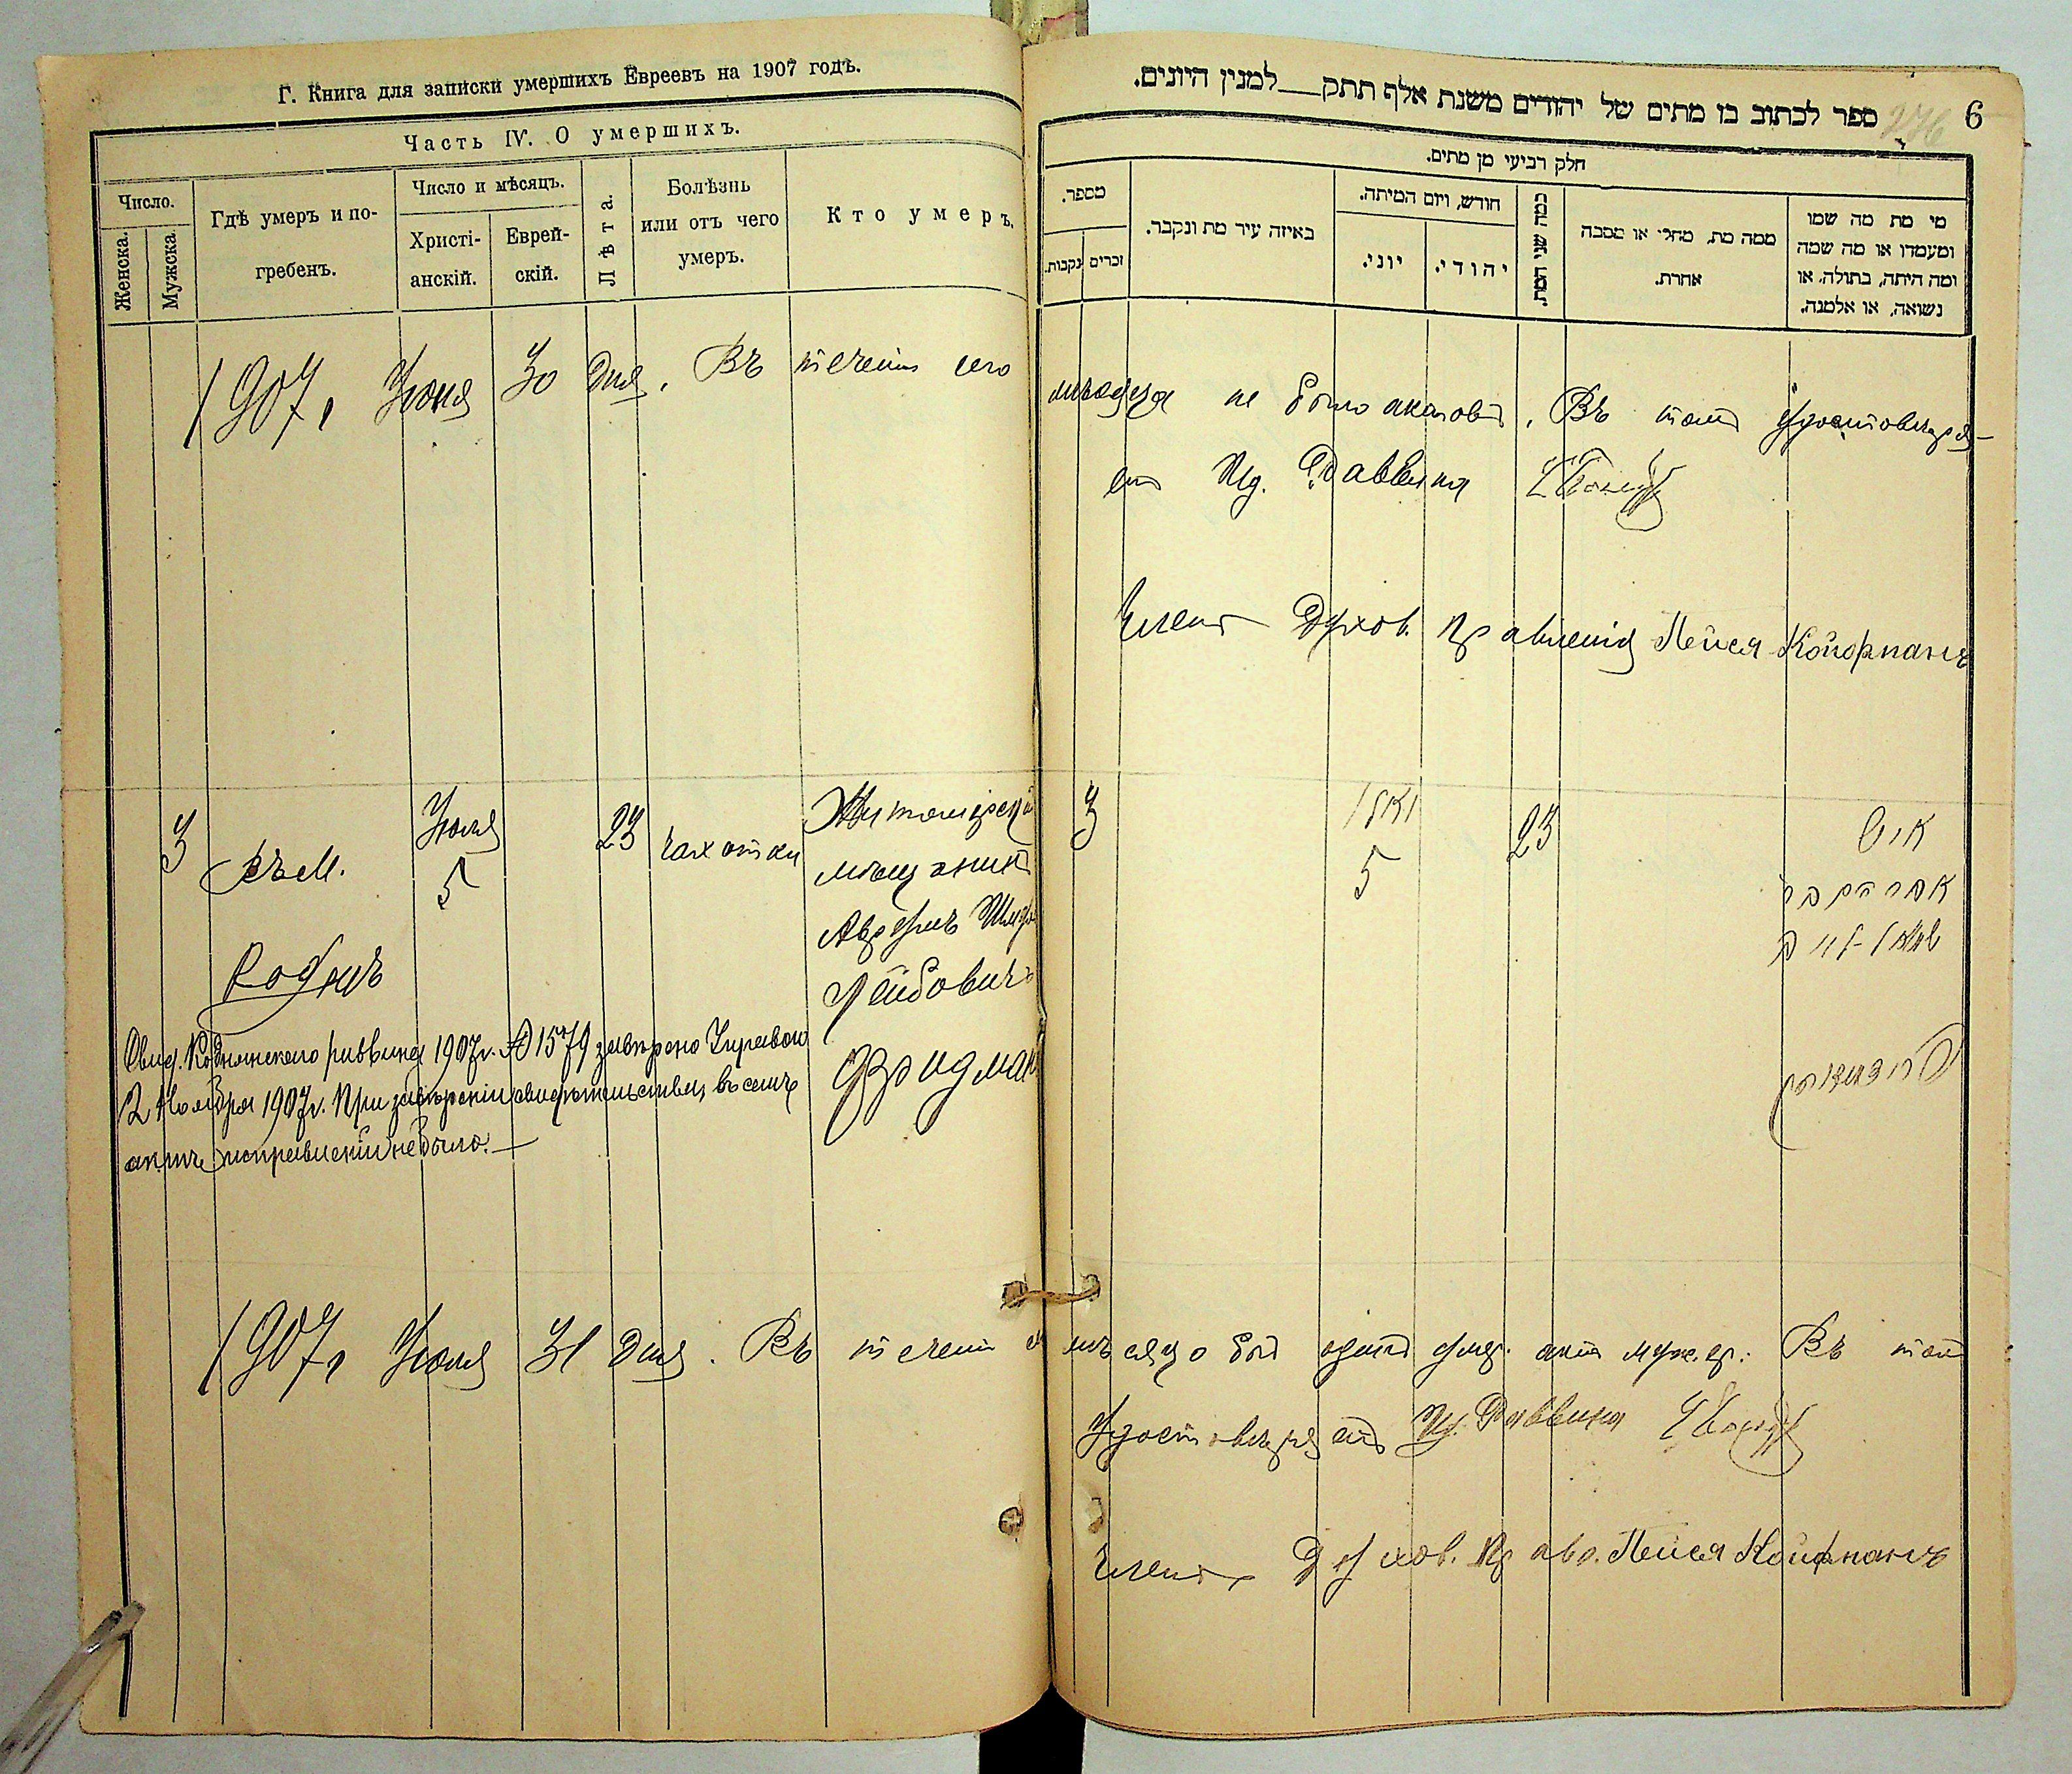 Г. Книга для записки умершихъ Евреевъ на 1907 годъ.
Часть IV. О умершихъ.
Число.
Женска.
Мужска.
Гдѣ умеръ и по-
гребенъ.
Число и мѣсяцъ.
Христі-
анскій.
Еврей-
скій.
Лѣта.
Болѣзнь
или отъ чего
умеръ.
Кто умеръ.
1907, Іюня 30 дня. Въ теченіи сего
3
въ м.
Кодня
Іюля
5
23
чахотки
Житомірскій
мѣщанинъ
Аврумъ Шмул
Лейбовичъ
Фридман
Свид. Коднянскаго раввина 1907 г. № 1579 завѣрено Управою
2 Ноября 1907 г. При завѣреніи свидѣтельства, въ семъ
актѣ исправленій не было.
1907, Іюля 31 дня. Въ теченіи
6
ספר לכתוב בו מתים של יהודים משנת אלף תתק למנין היונים.
חלק רביעי מן מתים.
מספר.
זכרים
נקבות.
באיזה עיר מת ונקבר.
חודש, ויום המיתה.
יוני.
יהודי.
כמה שני המת.
ממה מת, מחלי או מסבה
אחרת.
מי מת מה שמו
ומעמדו או מה שמה
ומה היתה, בתולה, או
נשואה, או אלמנה.
мѣсяца не было актовъ, Въ томъ удостовѣря-
етъ Ид. Раввина
Членъ Духов. Правленія Пейся Койфманъ
3
יולי
5
23
איש
אברהם בר
שמואל-לייב
פרידמאן
мѣсяца былъ одинъ умер. актъ муж. ер. Въ томъ
удостовѣряетъ Ид. Раввина
Членъ Духов. Прав. Пейся Койфманъ